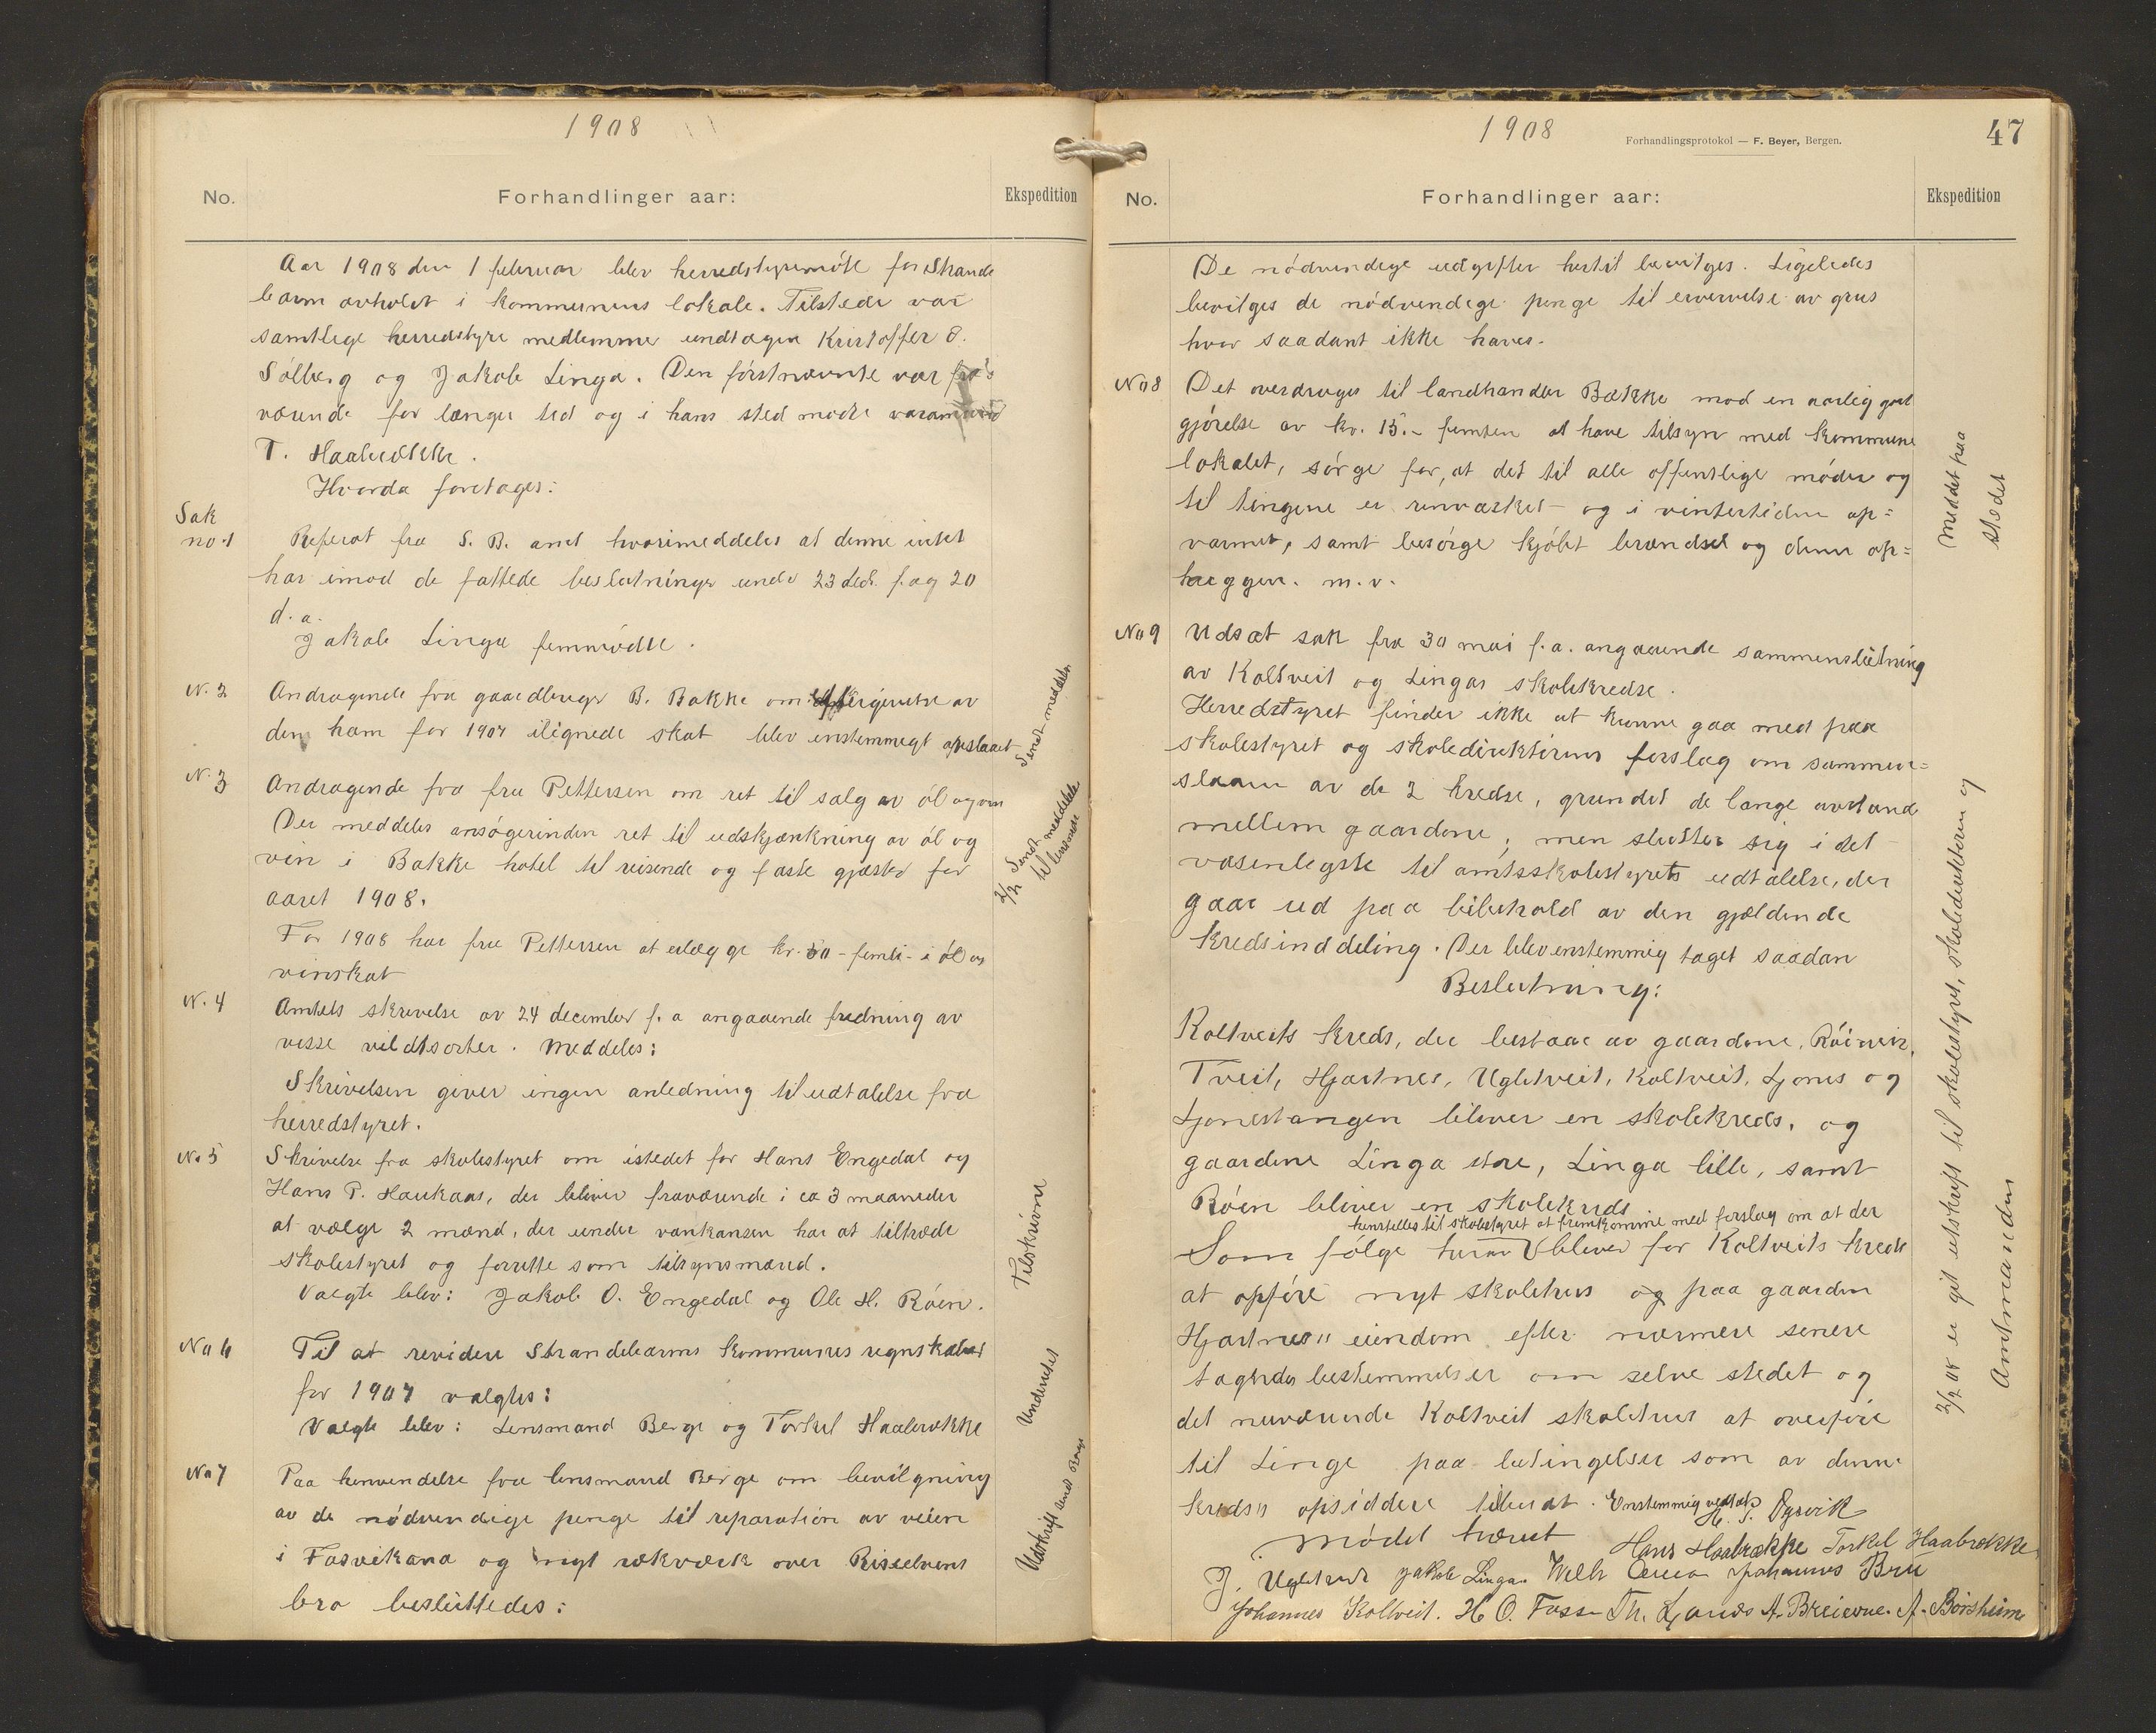 1908
No.
Forhandlinger aar:
Ekspedition
Aar 1908 den 1 februar blev herredstyremöte for Strande
barm avholdt i kommunens lokale. Tilstede var
samtlige herredstyre medlemmer undtagen Kristoffer O.
Sölberg og Jakob Linga. Den förstnævnte var fra-
værende for længer tid og i hans sted mödte varamand
T. Haabrekke.
Hvorda foretages:
Sak
no 1
Referat fra S. B. amt hvorimeddeles at denne intet
har imod de fattede beslutninger under 23 de f. a og 20
d. a.
Jakob Linga femmödte.
N. 2
Andragende fra gaardbruger B. Bakke om eftergivelse av
den ham for 1907 ilignede skat blev enstemmigt avslaaet
Sendt meddelse
N. 3
Andragende fra fru Pettersen om ret til salg av öl og vin
Der meddeles ansögerinden ret til udskjænkning av öl og
vin i Bakke hotel til reisende og faste gjæster for
aaret 1908.
For 1908 har fru Pettersen at erlægge kr. 50 - femti - i öl og
vinskat
2/2 Sendt meddelelse
til lensmand
N. 4
Amtets skrivelse av 24 december f. a angaaende fredning av
visse vildtsorter. Meddeles:
Skrivelsen giver ingen anledning til udtalelse fra
herredstyret.
No 5
Skrivelse fra skolestyret om istedet for Hans Engedal og
Hans P. Haukaas, der bliver fraværende i ca 3 maaneder
at vælge 2 mænd, der under vankansen har at tiltræde
skolestyret og forrette som tilsynsmænd.
Valgte blev: Jakob O. Engedal og Ole H. Röen.
Tilskrivne
No 6
Til at revidere Strandebarms kommunes regnskaber
for 1907 valgtes:
Valgte blev: Lensmand Berge og Torkel Haabrekke
Underrettet
No 7
Paa henvendelse fra lensmand Berge om bevilgning
av de nödvendige penge til reparation av veien
i Fosvikana og nyt rækværk over Risselvens
bro besluttedes:
Utskrift lensd Berge
1908
Forhandlingsprotokol — F. Beyer, Bergen.
47
No.
Forhandlinger aar:
Ekspedition
De nödvendige udgifter hertil bevilges. Ligeledes
bevilges de nödvendige penge til ervervelse av grus
hvor saadant ikke haves.
No 8
Det overdrages til landhandler Bakke mod en aarlig godt
gjörelse av kr. 15.- femten at have tilsyn med kommune
lokalet, sörge for, at det til alle offentlige möder og
til tingene er renvasket - og i vintertiden op=
varmet, samt besörge kjöbt brændsel og denne op=
huggen. m. v.
Meddelt paa
stedet
No 9
Udsat sak fra 30 mai f. a. angaaende sammenslutning
av Koltveit og Lingas skolekredse.
Herredstyret finder ikke at kunne gaa med paa
skolestyret og skoledirektörens forslag om sammen=
slaaen av de 2 kredse, grundet de lange avstand
mellem gaardene; men slutter sig i det
væsenlegste til amtsskolestyrets udtalelse, der
gaar ud paa bibehold av den gjældende
kredsinddeling. Der blev enstemmig taget saadan
Beslutning:
Koltveits kreds, der bestaar av gaardene,
Tveit, Hjartnes, Ugletveit, Koltveit, Ljones og
Ljonestangen bliver en skolekreds, og
gaardene Linga store, Linga lille, samt
Röen bliver en skolekreds
henstilles til skolestyret at fremkomme med forslag om at der
Som fölge herav bliver for Koltveits kreds
at opföre nyt skolehus og paa gaarden
Hjartnes" eiendom efter nærmere senere
tagendes bestemmelser om selve stedet og
det nuværende Koltveit skolehus at overföre
til Linge paa betingelser som av denne
kreds" opsiddere tilbudt. Enstemmig vedtat
2/2 08 er git utskrift til skolestyret, skoledirektören og
Amtmanden
Mödet hævet
H. S. Oysvik
Hans Haabrekke Torkel Haabrekke
J. Ugletveit Jakob Linga. Johannes Bru
Johannes Koltveit. H. O. Fosse Th. Ljones A. Breievne. A. Börsheim